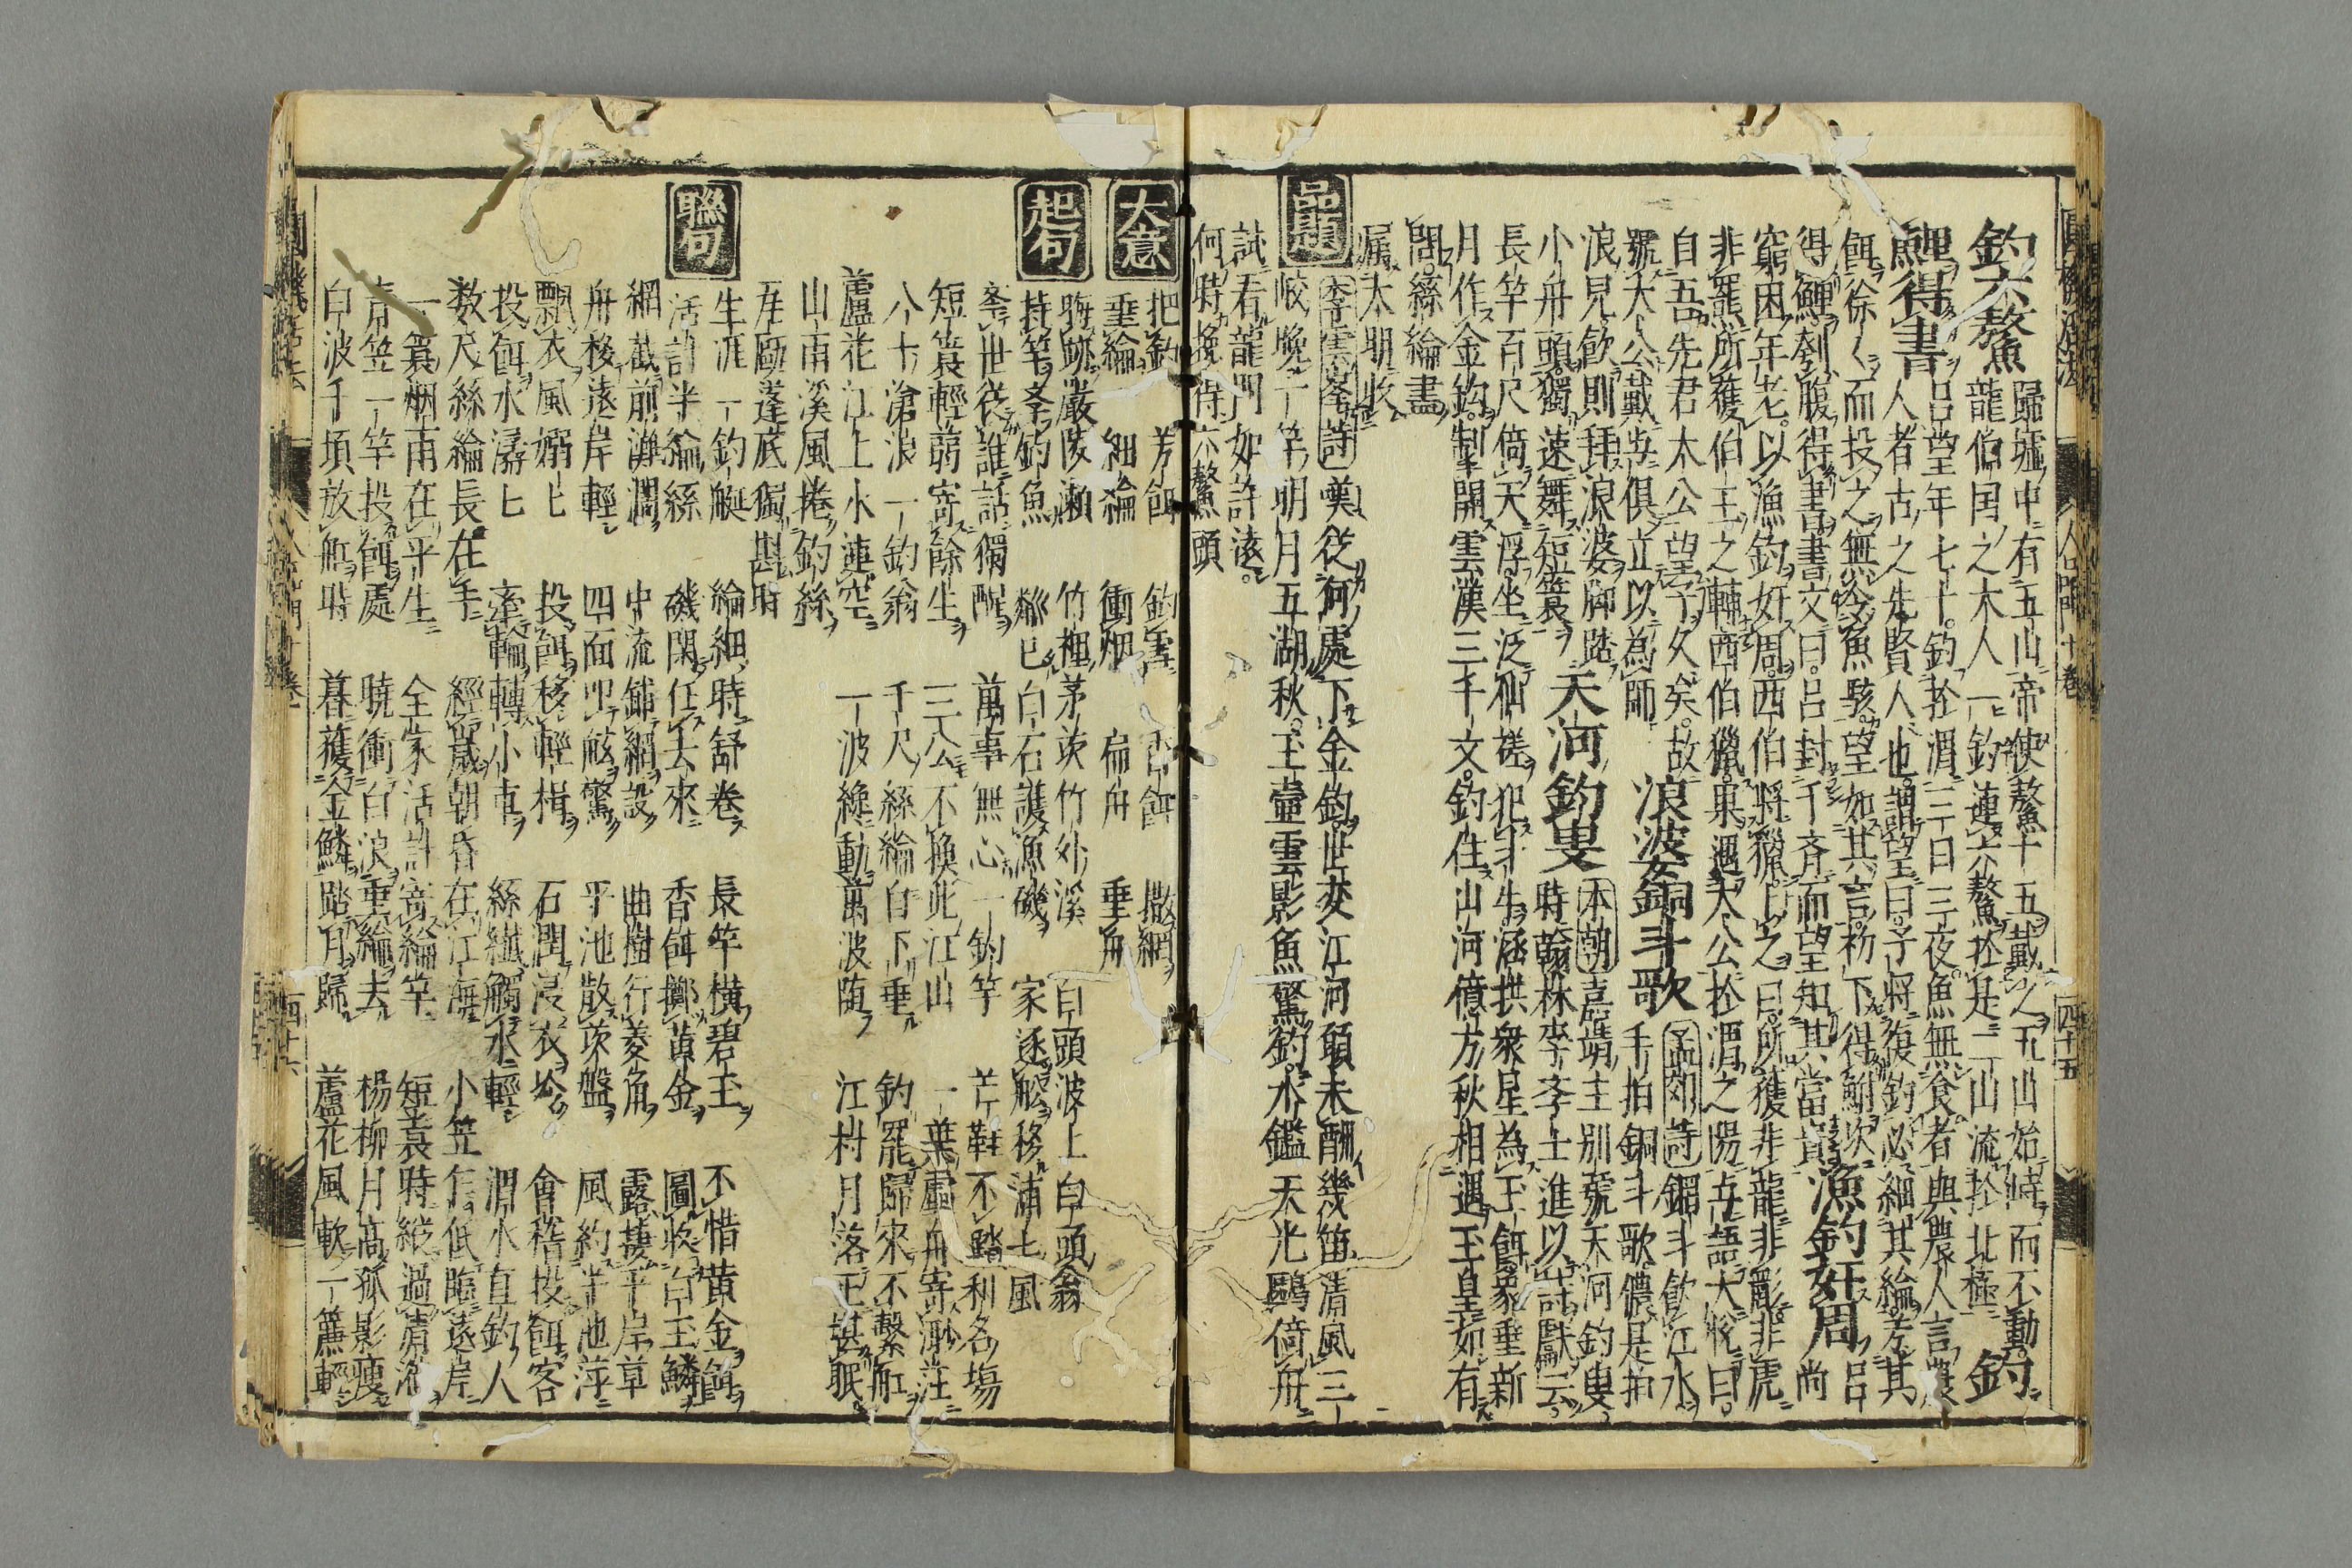 圓機活法 人品門 十卷 四十五
釣六鰲 歸墟中有五山帝使鰲十五戴之五山始峙而不動
龍伯国之大人一釣連六鰲於是二山流於北極 釣
鯉得書 呂望年七十釣於渭三日三夜魚無食者與農人言農
人者古之先賢人也謂望曰子將復釣必細其綸芳其
餌徐〻而投之無令魚駭望如其言初下得鮒次
得鯉刳腹得書書文曰呂封于斉而望知其當貴 漁釣奸周 呂尚
窮困年老以漁釣奸周西伯將獵卜之曰所獲非龍非彲非虎
非羆所獲伯王之輔西伯獵果遇太公於渭之陽與語大悅曰
自吾先君太公望子久矣故
號太公戴與俱立以為師 浪婆銅斗歌 孟郊詩 銅斗飲江水
手拍銅斗歌儂是拍
浪児飲則拜浪婆脚踏
小舟頭獨速舞短簑 天河釣叟 本朝嘉靖主別號天河釣叟
時翰林李李士進以詩獻云
長竿百尺倚天浮坐泛仙槎犯斗牛涵拱衆星為玉餌象垂新
月作金鈎制開雲漢三千丈釣住山河億万秋相遇玉皇如有
問絲綸盡
属太明收
品題 李雲峯詩 嘆從何處下金鈎世変江河願未酬幾笛清風三
峽晚一竿明月五湖秋玉壷雲影魚驚釣水鑑天光鷗倚舟
試看龍門如許遠
何時挽得六鰲頭
大意 把釣 芳餌 釣雪 香餌 撒網
垂綸 細綸 衝烟 扁舟 垂舟
起句 晦跡嚴陵瀬 竹裡茅茨竹外溪 白頭波上白頭翁
持竿冬釣魚 粼巳白石護漁磯 家逐舩移浦七風
奔世從誰話獨醒 萬事無心一釣竿 芒鞋不踏利名塲
短簑輕蒻寄餘生 三公不換此江山 一葉扁舟寄渺茫
八十滄浪一釣翁 千尺絲綸自下垂 釣罷歸來不繫舡
蘆花江上水連空 一波纔動萬波随 江村月落正堪眠
山雨溪風捲釣絲
瓦甌蓬底獨斟時
聯句 生涯一釣艇 綸細時舒卷 長竿横碧玉 不惜黄金餌
活計半綸絲 磯閑任去來 香餌擲黄金 圖收白玉鱗
網截前灘濶 中流鋪網設 曲樹行菱角 露蔞平岸草
舟移遠岸輕 四面叩舷驚 平池散茨盤 風約半池萍
飄衣風嫋七 投餌移輕楫 石潤浸衣冷 會稽投餌客
投餌水潺七 牽輪轉小車 絲繊觸水輕 渭水直釣人
数尺絲綸長在手 經歳朝昏在江海 小笠乍低臨遠岸
一簑烟雨在平生 全家活計寄綸竿 短簑時縦過清湾
青笠一竿投餌處 曉衝白浪垂綸去 楊柳月高孤影痩
白波千頃放舡時 暮獲金鱗踏月歸 蘆花風軟一篙輕
圓機活法 人品門 十卷 四十六